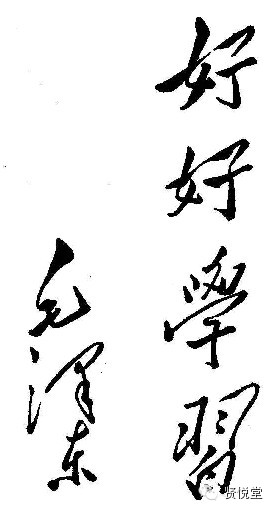 好好學習
毛泽东
贤悦堂